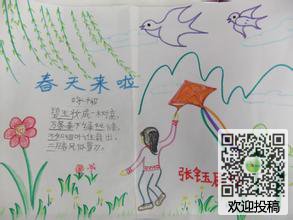 春天来啦
咏柳
碧玉妆成一树高,
万条垂下绿丝绦。
不知细叶谁裁出,
二月春风似剪刀。
张钰
欢迎投稿